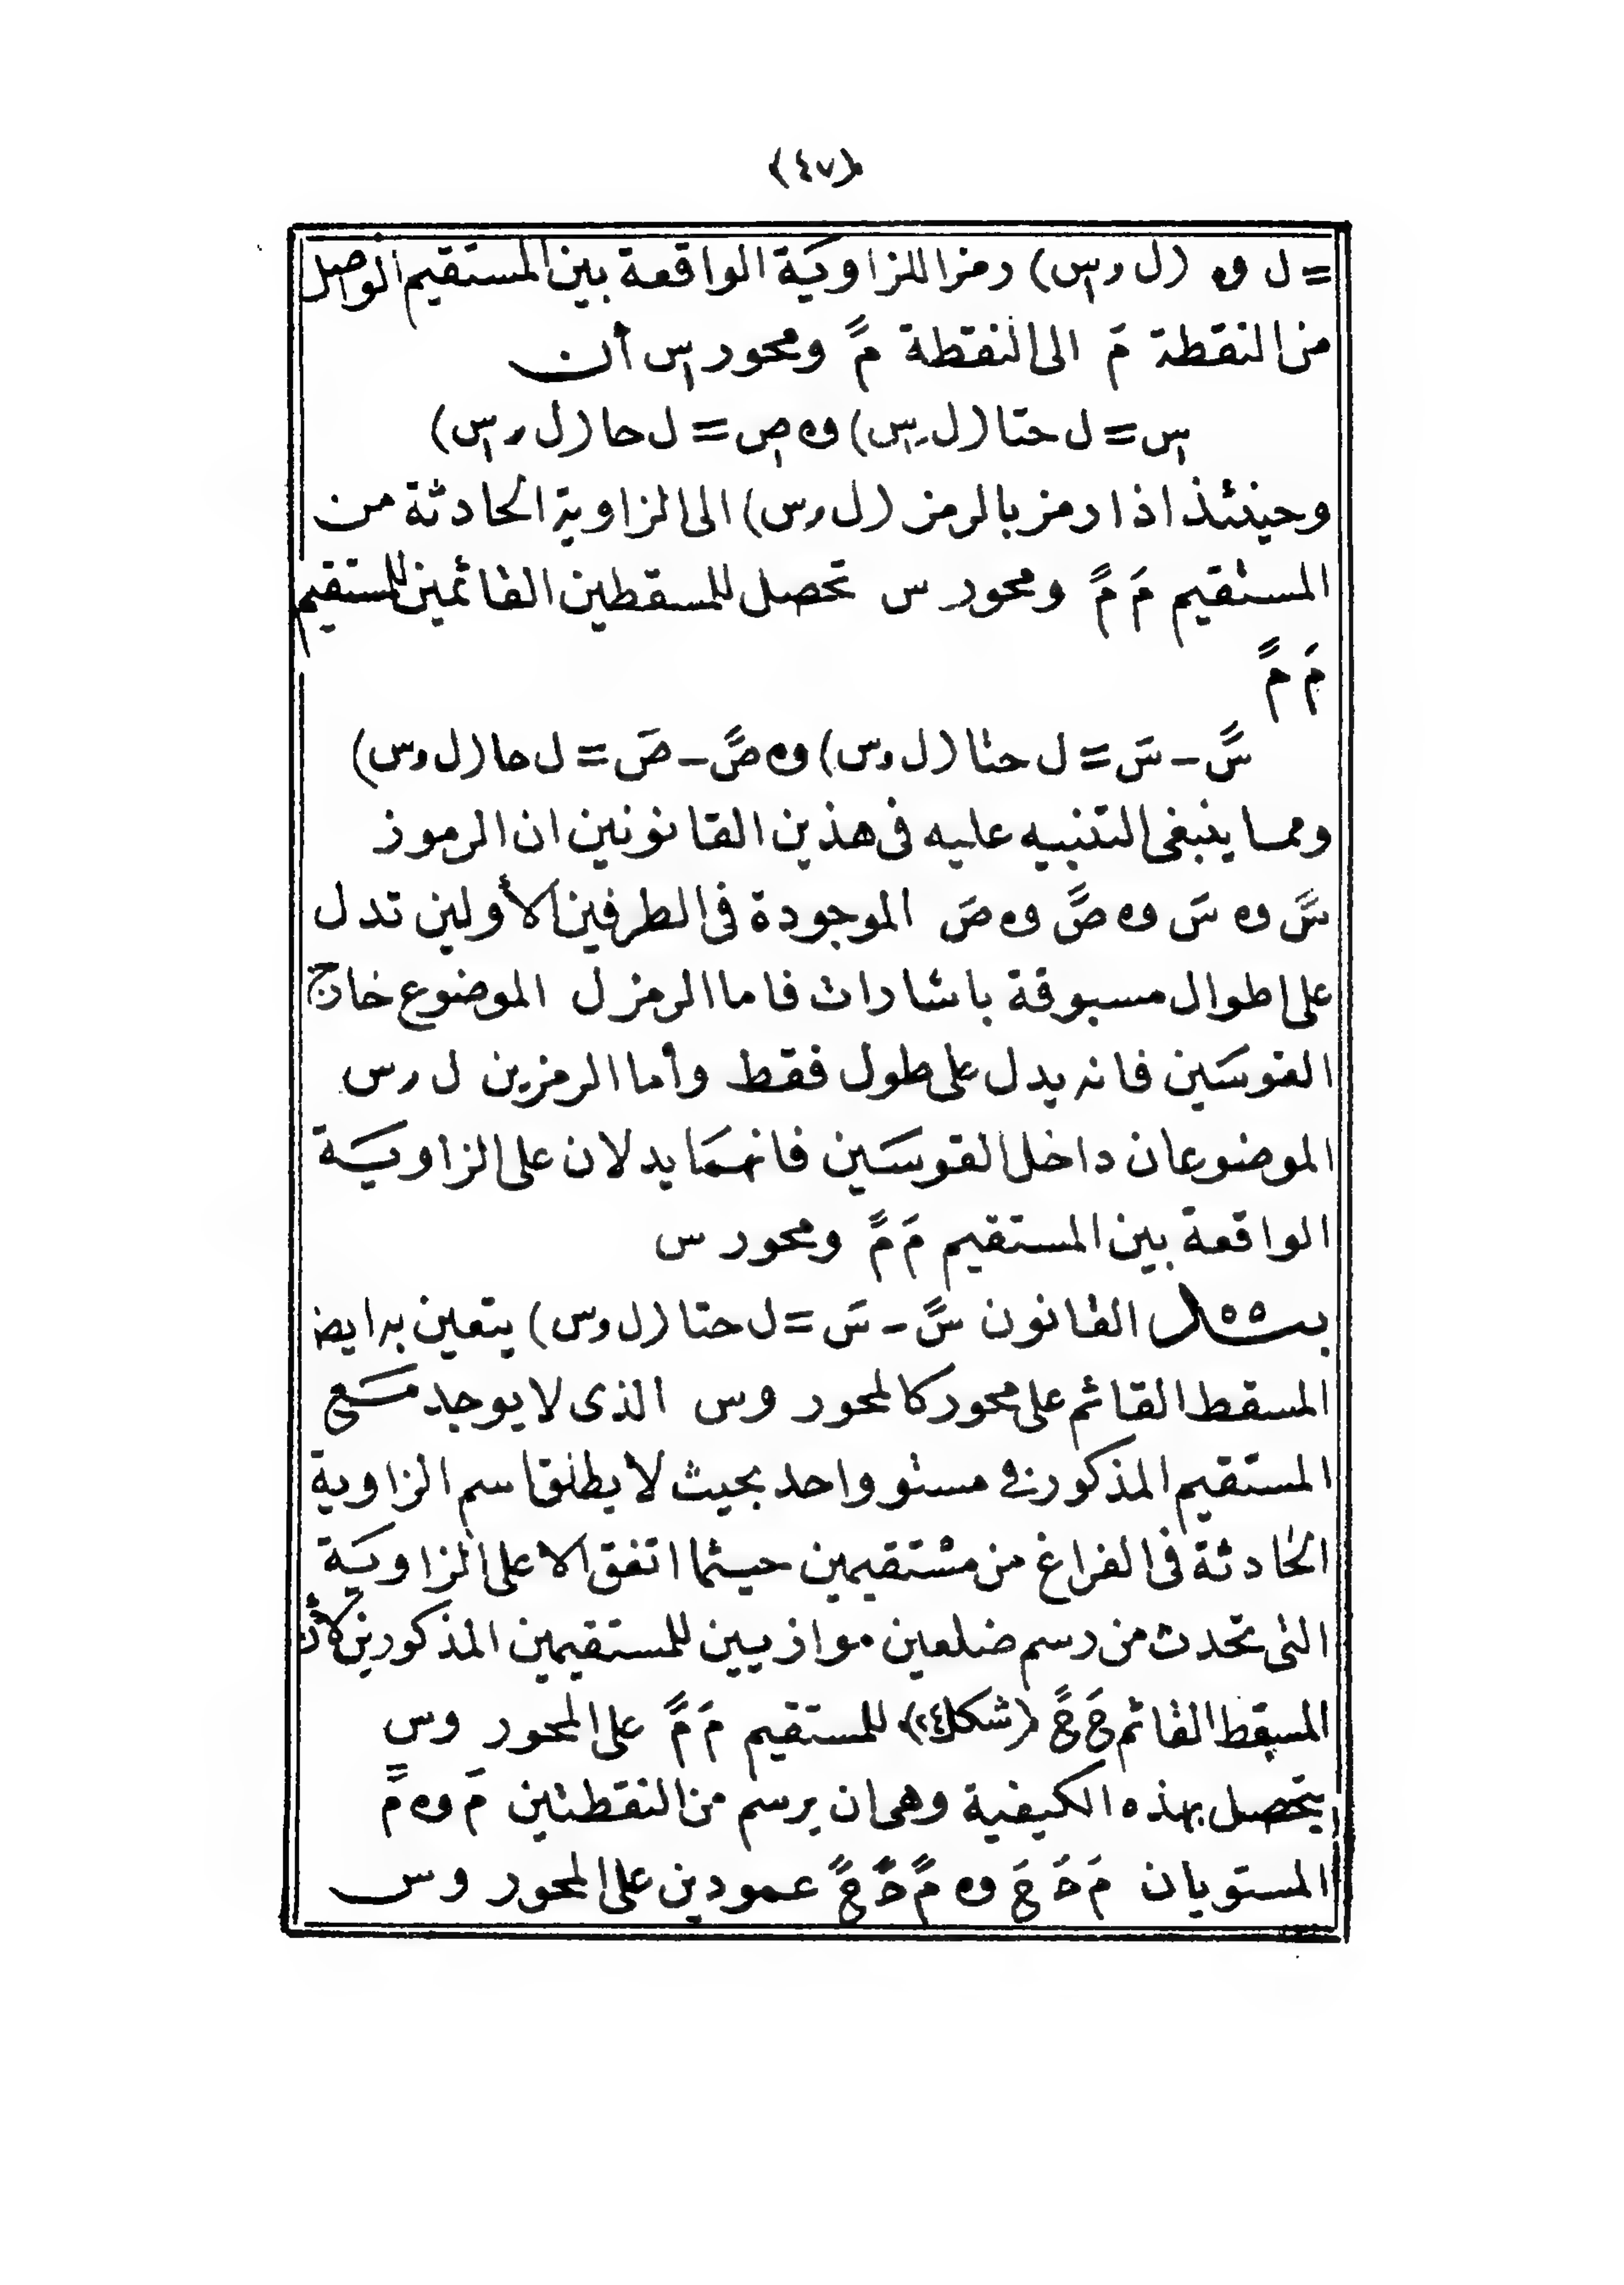 (٤٧)
= ل و٥ (ل و ﺳ١) رمزا للزاويَة الواقعة بين المستقيم الواصل
من النقطة مَ الى النقطة مً ومحور ﺳ١ أن
ﺳ١ = ل حتا (ل و ﺳ١) و٥ ﺻ١ = ل حا (ل و ﺳ١)
وحينئذ اذا رمز بالرمز (ل و س) الى الزاوية الحادثة من
المستقيم مَ مً ومحور س تحصل للمسقطين القائمين للمستقيم
مَ مً
سً - سَ = ل حتا (ل و س) و٥ صً - صَ = ل حا (ل و س)
ومما ينبغى التنبيه عليه فى هذين القانونين ان الرموز
سً و٥ سَ و٥ صً و٥ صَ الموجودة فى الطرفين الأولين تدل
على اطوال مسبوقة باشارات فاما الرمز ل الموضوع خارج
القوسَين فانه يدل على طول فقط وأما الرمزين ل و س
الموضوعان داخل القوسَين فانهمَا يدلان على الزاويَة
الواقعة بين المستقيم مَ مً ومحور س
القانون سً - سَ = ل حتا (ل و س) يتعين به ايضا
المسقط القائم على محور كالمحور وس الذى لا يوجد مَع
المستقيم المذكور فى مستو واحد بحيث لا يطلق اسم الزاوية
الحادثة فى الفراغ من مستقيمين حيثما اتفق الا على الزاويَة
التى تحدث من رسم ضلعين موازيين للمستقيمين المذكورين لأن
المسقط القائم حَ حً (شكل ٢٤) للمستقيم مَ مً على المحور وس
يتحصل بهذه الكيفية وهى ان يرسم من النقطتين مَ و٥ مً
المستويان مَ حَ حَ و٥ مً حً حً عمودين على المحور وس